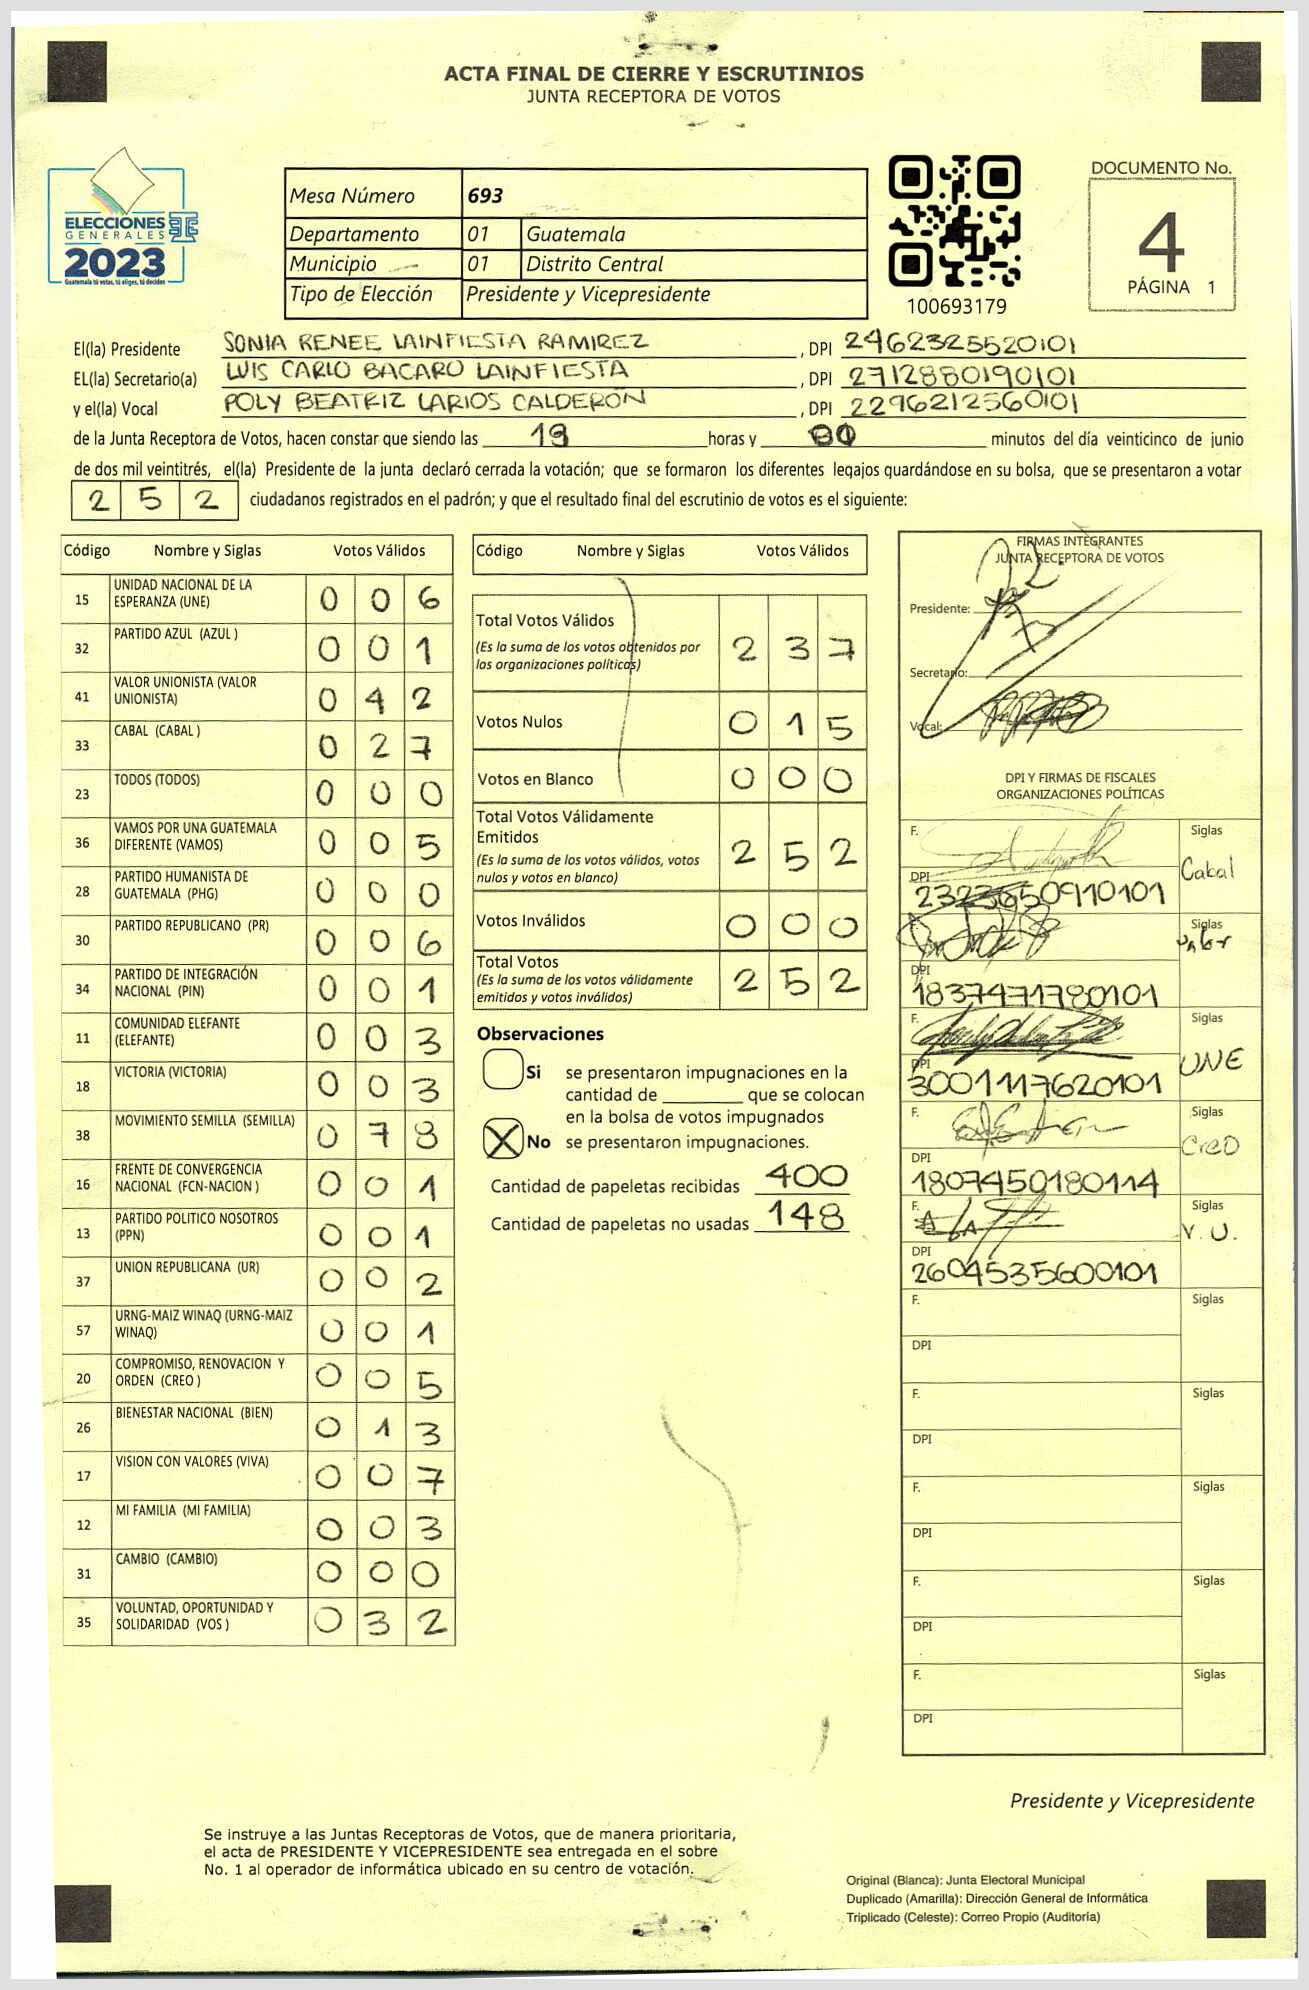 ACTA FINAL DE CIERRE Y ESCRUTINIOS
JUNTA RECEPTORA DE VOTOS
ELECCIONES
GENERALES
2023
Guatemala tú votas, tú eliges, tú decides
Mesa Número 693
Departamento 01 Guatemala
Municipio 01 Distrito Central
Tipo de Elección Presidente y Vicepresidente
100693179
DOCUMENTO No.
4
PÁGINA 1
El(la) Presidente SONIA RENEE LAINFIESTA RAMIREZ , DPI 2462325520101
EL(la) Secretario(a) LUIS CARLO BACARO LAINFIESTA , DPI 2712880190101
y el(la) Vocal POLY BEATRIZ LARIOS CALDERÓN , DPI 2296212560101
de la Junta Receptora de Votos, hacen constar que siendo las 19 horas y minutos del día veinticinco de junio
de dos mil veintitrés, el(la) Presidente de la junta declaró cerrada la votación; que se formaron los diferentes legajos guardándose en su bolsa, que se presentaron a votar
2 5 2 ciudadanos registrados en el padrón; y que el resultado final del escrutinio de votos es el siguiente:
Código Nombre y Siglas Votos Válidos
15 UNIDAD NACIONAL DE LA ESPERANZA (UNE) 0 0 6
32 PARTIDO AZUL (AZUL ) 0 0 1
41 VALOR UNIONISTA (VALOR UNIONISTA) 0 4 2
33 CABAL (CABAL ) 0 2 7
23 TODOS (TODOS) 0 0 0
36 VAMOS POR UNA GUATEMALA DIFERENTE (VAMOS) 0 0 5
28 PARTIDO HUMANISTA DE GUATEMALA (PHG) 0 0 0
30 PARTIDO REPUBLICANO (PR) 0 0 6
34 PARTIDO DE INTEGRACIÓN NACIONAL (PIN) 0 0 1
11 COMUNIDAD ELEFANTE (ELEFANTE) 0 0 3
18 VICTORIA (VICTORIA) 0 0 3
38 MOVIMIENTO SEMILLA (SEMILLA) 0 7 8
16 FRENTE DE CONVERGENCIA NACIONAL (FCN-NACION ) 0 0 1
13 PARTIDO POLITICO NOSOTROS (PPN) 0 0 1
37 UNION REPUBLICANA (UR) 0 0 2
57 URNG-MAIZ WINAQ (URNG-MAIZ WINAQ) 0 0 1
20 COMPROMISO, RENOVACION Y ORDEN (CREO ) 0 0 5
26 BIENESTAR NACIONAL (BIEN) 0 1 3
17 VISION CON VALORES (VIVA) 0 0 7
12 MI FAMILIA (MI FAMILIA) 0 0 3
31 CAMBIO (CAMBIO) 0 0 0
35 VOLUNTAD, OPORTUNIDAD Y SOLIDARIDAD (VOS ) 0 3 2
Código Nombre y Siglas Votos Válidos
Total Votos Válidos
(Es la suma de los votos obtenidos por las organizaciones políticas) 2 3 7
Votos Nulos 0 1 5
Votos en Blanco 0 0 0
Total Votos Válidamente Emitidos
(Es la suma de los votos válidos, votos nulos y votos en blanco) 2 5 2
Votos Inválidos 0 0 0
Total Votos
(Es la suma de los votos válidamente emitidos y votos inválidos) 2 5 2
Observaciones
Si se presentaron impugnaciones en la
cantidad de ________ que se colocan
en la bolsa de votos impugnados
X No se presentaron impugnaciones.
Cantidad de papeletas recibidas 400
Cantidad de papeletas no usadas 148
FIRMAS INTEGRANTES
JUNTA RECEPTORA DE VOTOS
Presidente:
Secretario:
Vocal:
DPI Y FIRMAS DE FISCALES
ORGANIZACIONES POLÍTICAS
F. Siglas Cabal
DPI 2323650910101
F. Siglas Valor
DPI 1837471780101
F. Siglas UNE
DPI 3001117620101
F. Siglas CREO
DPI 1807450180114
F. Siglas V. U.
DPI 2604535600101
F. Siglas
DPI
F. Siglas
DPI
F. Siglas
DPI
F. Siglas
DPI
F. Siglas
DPI
Presidente y Vicepresidente
Se instruye a las Juntas Receptoras de Votos, que de manera prioritaria,
el acta de PRESIDENTE Y VICEPRESIDENTE sea entregada en el sobre
No. 1 al operador de informática ubicado en su centro de votación.
Original (Blanca): Junta Electoral Municipal
Duplicado (Amarilla): Dirección General de Informática
Triplicado (Celeste): Correo Propio (Auditoría)